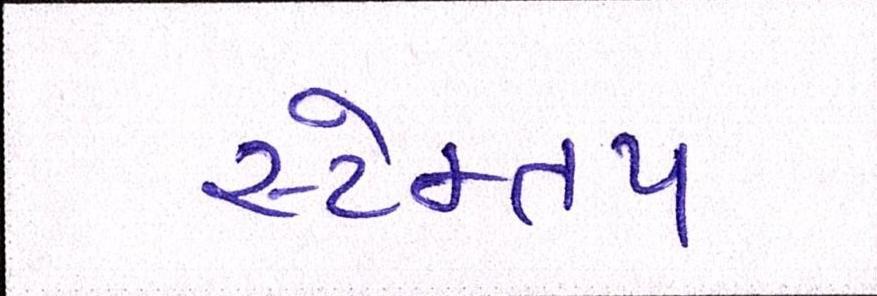 સ્ટેમ્તપ